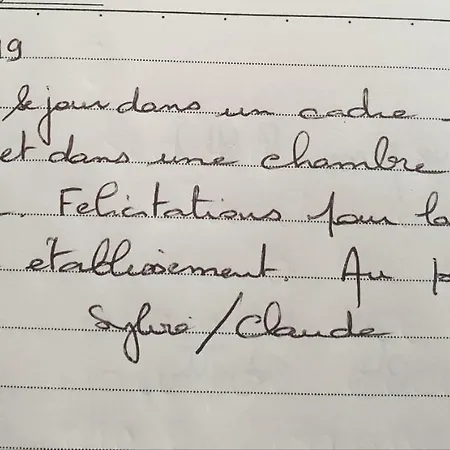 19
séjour dans un cadre
et dans une chambre
. Felicitations pour la
établissement. Au
Sylvie/Claude